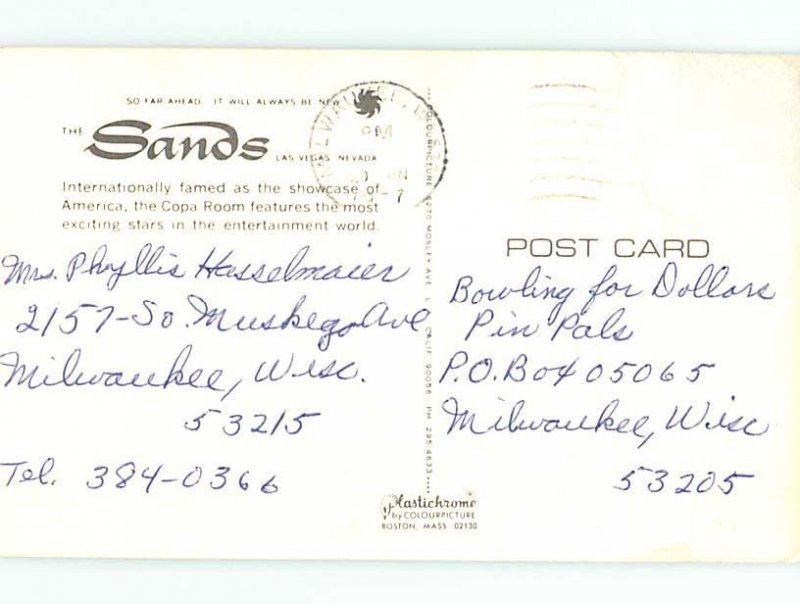 SO FAR AHEAD IT WILL ALWAYS BE NEW
THE Sands LAS VEGAS, NEVADA
Internationally famed as the showcase of
America, the Copa Room features the most
exciting stars in the entertainment world.
Mrs. Phyllis Hasselmaier
2157-So. Muskego Ave
Milwaukee, Wisc.
53215
Tel. 384-0366
MILWAUKEE, W
PM
COLOURPICTURE 4270 MOSLEY AVE L CALIF 90056 PH 295 4633
POST CARD
Bowling for Dollars
Pin Pals
P.O. Box 05065
Milwaukee, Wisc
53205
Plastichrome
by COLOURPICTURE
BOSTON, MASS 02130